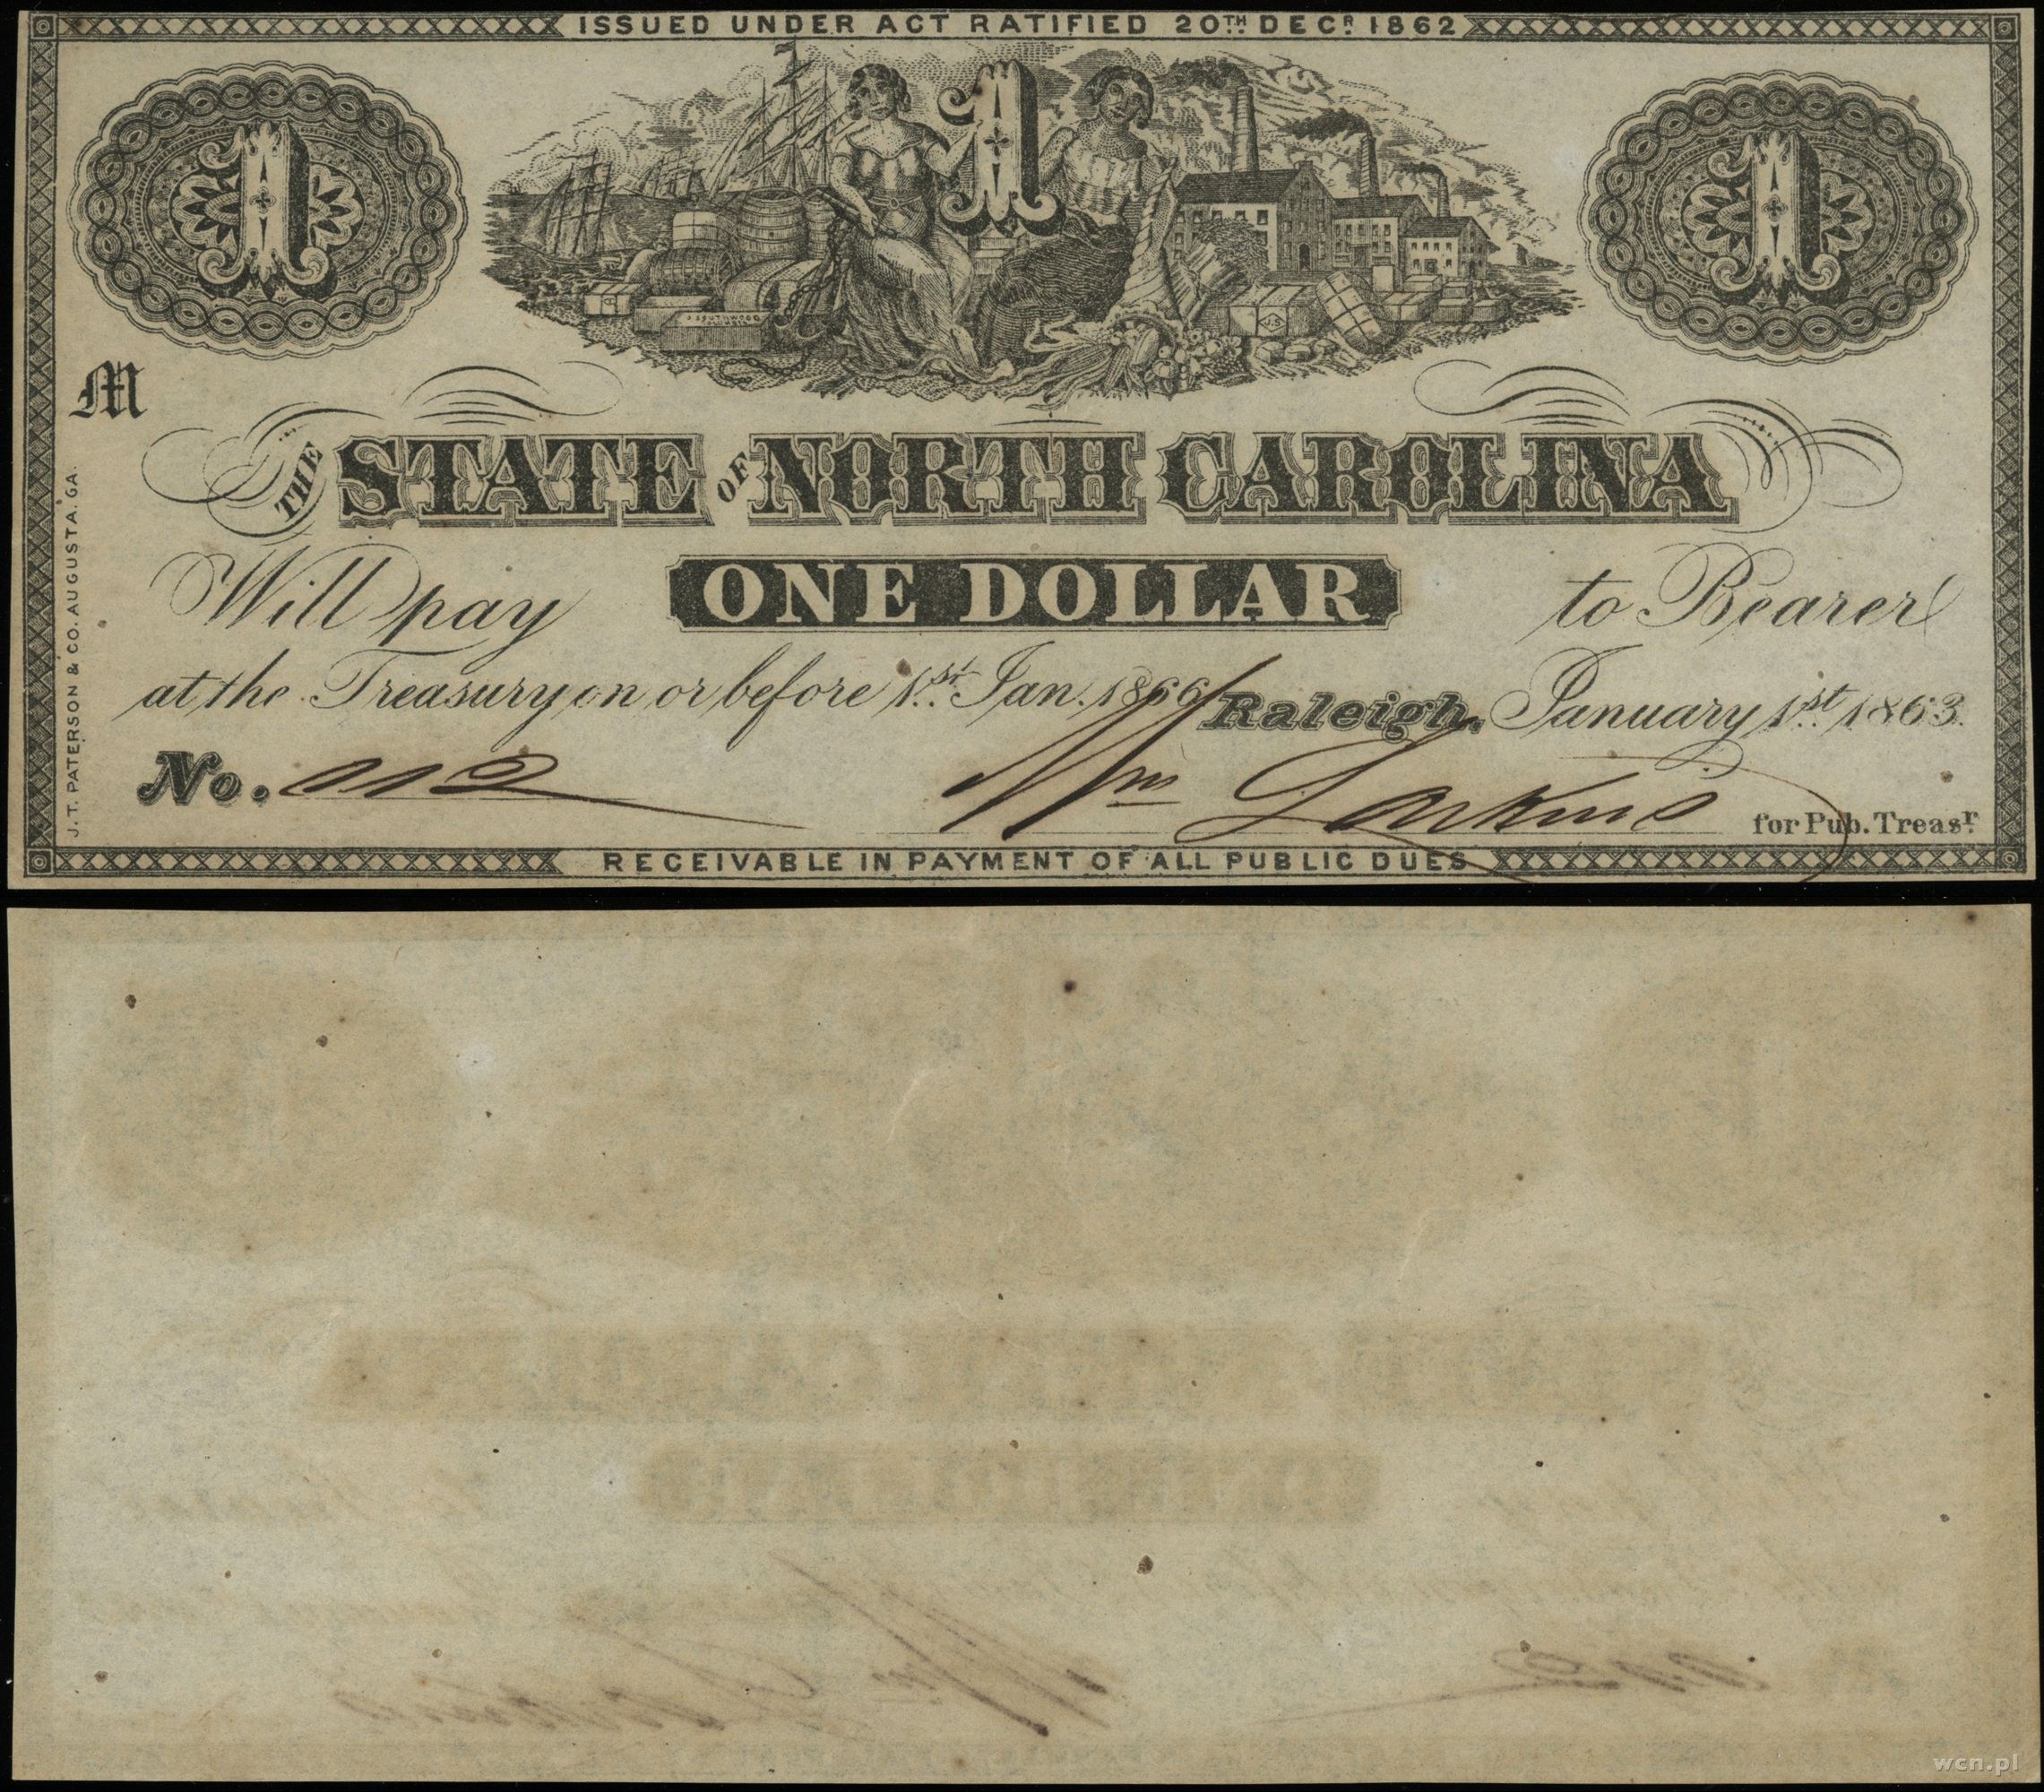 ISSUED UNDER ACT RATIFIED 20TH DECR 1862
1 1 1
J SOUTHWOOD
COLUMBIA
J.S
M
THE STATE OF NORTH CAROLINA
Will pay ONE DOLLAR to Bearer
at the Treasury on or before 1st Jan. 1866 Raleigh, January 1st 1863.
No. 112 Wm Larkins for Pub. Treasr
RECEIVABLE IN PAYMENT OF ALL PUBLIC DUES
J.T. PATERSON & CO. AUGUSTA, GA.
wcn.pl